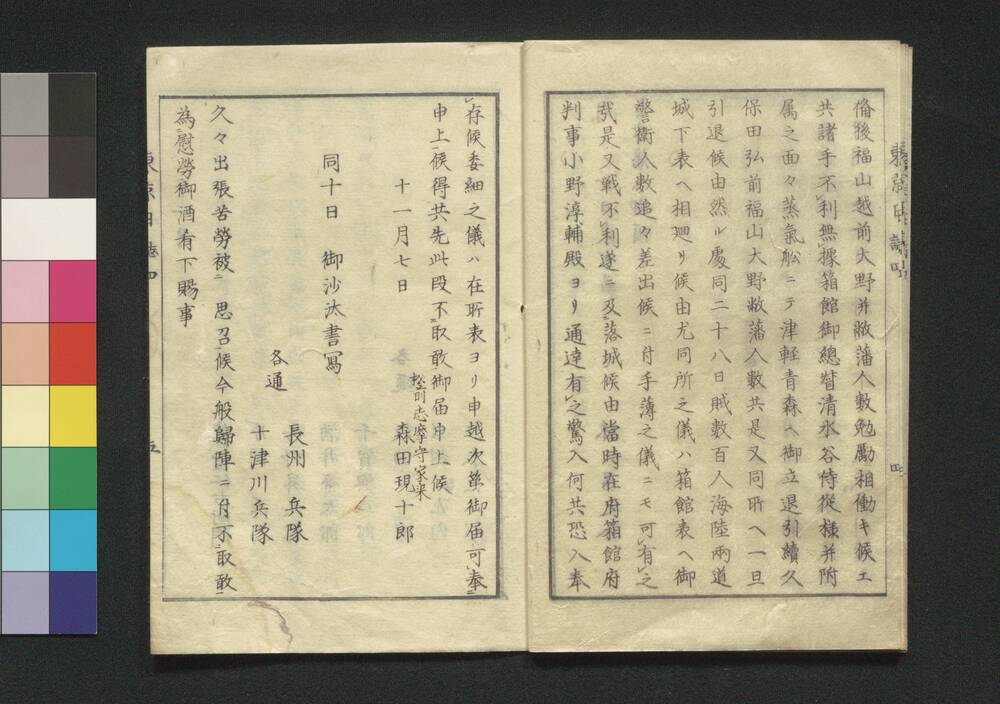 備後福山越前大野并敝藩人数勉勵相働キ候エ
共諸手不利無據箱館御總督清水谷侍從様并附
属之面々蒸氣舩ニテ津軽青森ヘ御立退引續久
保田弘前福山大野敝藩人數共是又同所ヘ一旦
引退候由然ル處同二十八日賊數百人海陸兩道
城下表ヘ相廻リ候由尤同所之儀ハ箱館表ヘ御
警衛人數追々差出候ニ付手薄之儀ニモ可有之
哉是又戰不利遂ニ及落城候由當時在府箱館府
判事小野淳輔殿ヨリ通達有之驚入何共恐入奉
存候委細之儀ハ在所表ヨリ申越次第御届可奉
申上候得共先此段不取敢御届申上候
十一月七日
松前志摩守家来
森田現十郎
同十日 御沙汰書寫
各通
長州 兵隊
十津川兵隊
久々出張苦勞被ニ 思召候今般歸陣ニ付不取敢
為慰勞御酒肴下賜事
東京日誌四
五